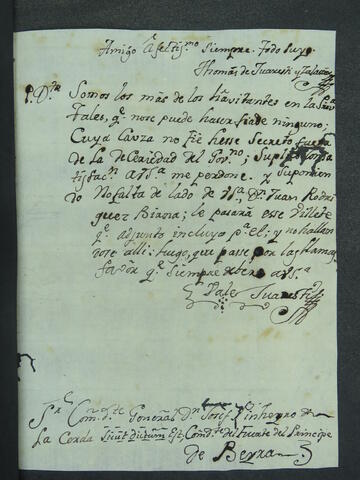 Amigo Afectis.mo Siempre. Todo Suyo
Thomas de Juarest y Zalazar
P.D.ta Somos los mas de los havitantes en la
Tales, q.e nose puede haser fiade ninguno
Cuya Cauza no fié hesse Secreto fuera
de la de Cariedad del Suplico
tisfac.n a VS.a me perdone. y Suponien
do No falta de lado de VS.a D.n Juan Rodri
guez Birixia; le pasará esse Villete
q.e adjunto incluyo p.a el; y no hallan
dose alli; hago, que passe, por las llamas
favor q.e siempre a VS.a
Vale Juarest
S.r Com.te General D.n Josef Pinheyro
La Cerda Com.te del Fuerte del Principe
de Beyra